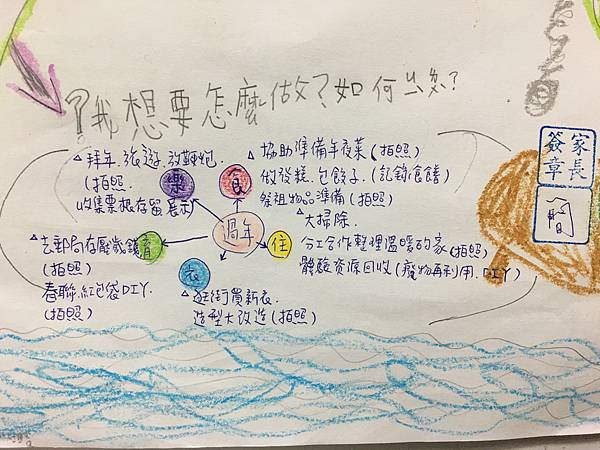 ?我想要怎麼做?如何做?
△拜年.旅遊.放鞭炮.
(拍照.
收集票根存留展示)
樂
食
△協助準備年夜菜(拍照)
做發糕.包餃子.(記錄食譜)
祭祖物品準備(拍照)
過年
住
△大掃除.
分工合作整理溫暖的家(拍照)
體驗資源回收(廢物再利用.DIY)
育
△去郵局存壓歲錢
(拍照)
春聯.紅包袋DIY.
(拍照)
衣
△逛街買新衣.
造型大改造(拍照)
家長
簽章